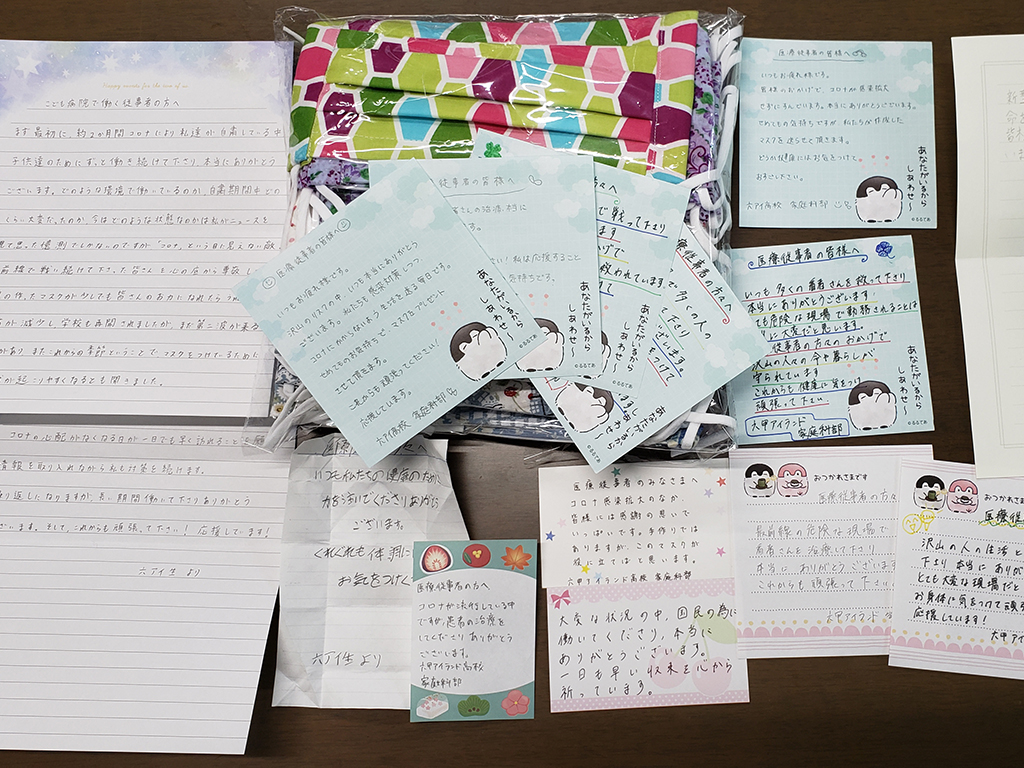 こども病院で働く従事者の方へ
まず最初に、約2か月間コロナにより私達が自粛している中
子供達のためにずっと働き続けて下さり、本当にありがとう
ございます。どのような環境で働いているのか、自粛期間中どの
くらい大変だったのか、今はどのような状態なのかは私がニュースを
見て思った憶測でしかないのですが「コロナ」という目に見えない敵
前線で戦い続けて下さった皆さんを心の底から尊敬し
の作ったマスクが少しでも皆さんのお力になれたらうれ
が減少し学校も再開されましたが、まだ第二波が来る
があり、またこれからの季節ということでマスクをつけているために
が起こりやすくなるとも聞きました。
コロナの心配がなくなる日が一日でも早く訪れることを願
情報を取り入れながら私も対策を続けます。
り返しになりますが、長い期間働いて下さりありがとう
ざいます。そして、これからも頑張って下さい！応援してます！
六ア生 より
医療従事者の皆様へ
いつもお疲れ様です。
沢山のリスクの中、いつも本当にありがとう
ございます。私たちも感染対策しつつ
コロナにかからないよう生活を送る毎日です。
せめてもの気持ちで、マスクをプレゼント
させて頂きます。
これからも頑張ってください！
応援しています。
六アイ高校 家庭科部
あなたがいるから
しあわせ〜
©るるてあ
従事者の皆様へ
皆さんの治療、本当に
さい！私は応援すること
気持ちです。
あなたがいるから
しあわせ〜
で戦って下さり
ます
かげで
救われています。
従事者の方々へ
多くの人の
下さり
ざいます。
をつけて
医療従事者の方々へ
いつもお疲れ様です。
皆様のおかげで、コロナが感染拡大
せずにすんでいます。本当にありがとうございます。
せめてもの気持ちですが、私たちが作成した
マスクを送らせて頂きます。
どうかお健康にはお気をつけて
おすごしください。
六アイ高校 家庭科部
あなたがいるから
しあわせ〜
©るるてあ
医療従事者の皆様へ
いつも多くの患者さんを救って下さり
本当にありがとうございます。
とても危険な現場で勤務されることは
本当に大変だと思います。
従事者の方々のおかげで
沢山の人々の命や暮らしが
守られています
これからも健康に気をつけ
頑張って下さい
六甲アイランド
家庭科部
あなたがいるから
しあわせ〜
©るるてあ
いつも私たちの健康のために
力を注いでくださりありがとう
ございます。
くれぐれも体調に
お気をつけく
六ア生より
医療従事者の方へ
コロナが流行している中
ですが、患者の治療を
してくださりありがとう
ございます。
六甲アイランド高校
家庭科部
医療従事者のみなさまへ
コロナ感染拡大のなか、
皆様には感謝の思いで
いっぱいです。手作りでは
ありますが、このマスクが
役に立てばと思います。
六甲アイランド高校 家庭科部
大変な状況の中、国民の為に
働いてくださり、本当に
ありがとうございます。
一日も早い収束を心から
祈っています。
おつかれさまです
医療従事者の方々
最前線の危険な現場で
患者さんを治療して下さり
本当にありがとうございます
これからも頑張って下さい。
六甲アイランド
おつかれさまです
医療従
沢山の人の生活と
下さり本当にありが
とても大変な現場だと
お身体に気をつけて頑張
応援しています！
六甲アイ